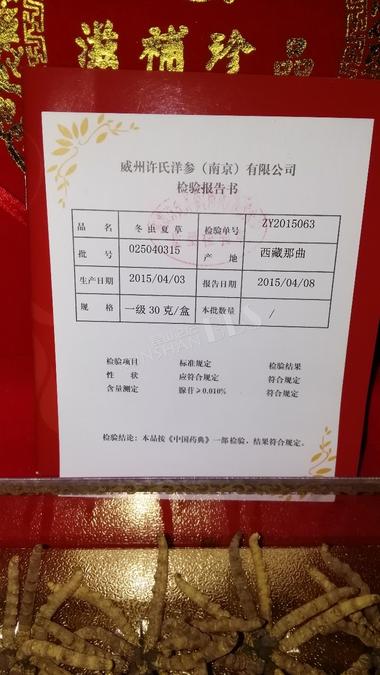 滋補珍品
威州许氏洋参（南京）有限公司
检验报告书
品 名 冬虫夏草 检验单号 ZY2015063
批 号 025040315 产 地 西藏那曲
生产日期 2015/04/03 报告日期 2015/04/08
规 格 一级30克/盒 本批数量 /
检验项目 标准规定 检验结果
性 状 应符合规定 符合规定
含量测定 腺苷≥0.010% 符合规定
检验结论：本品按《中国药典》一部检验，结果符合规定。